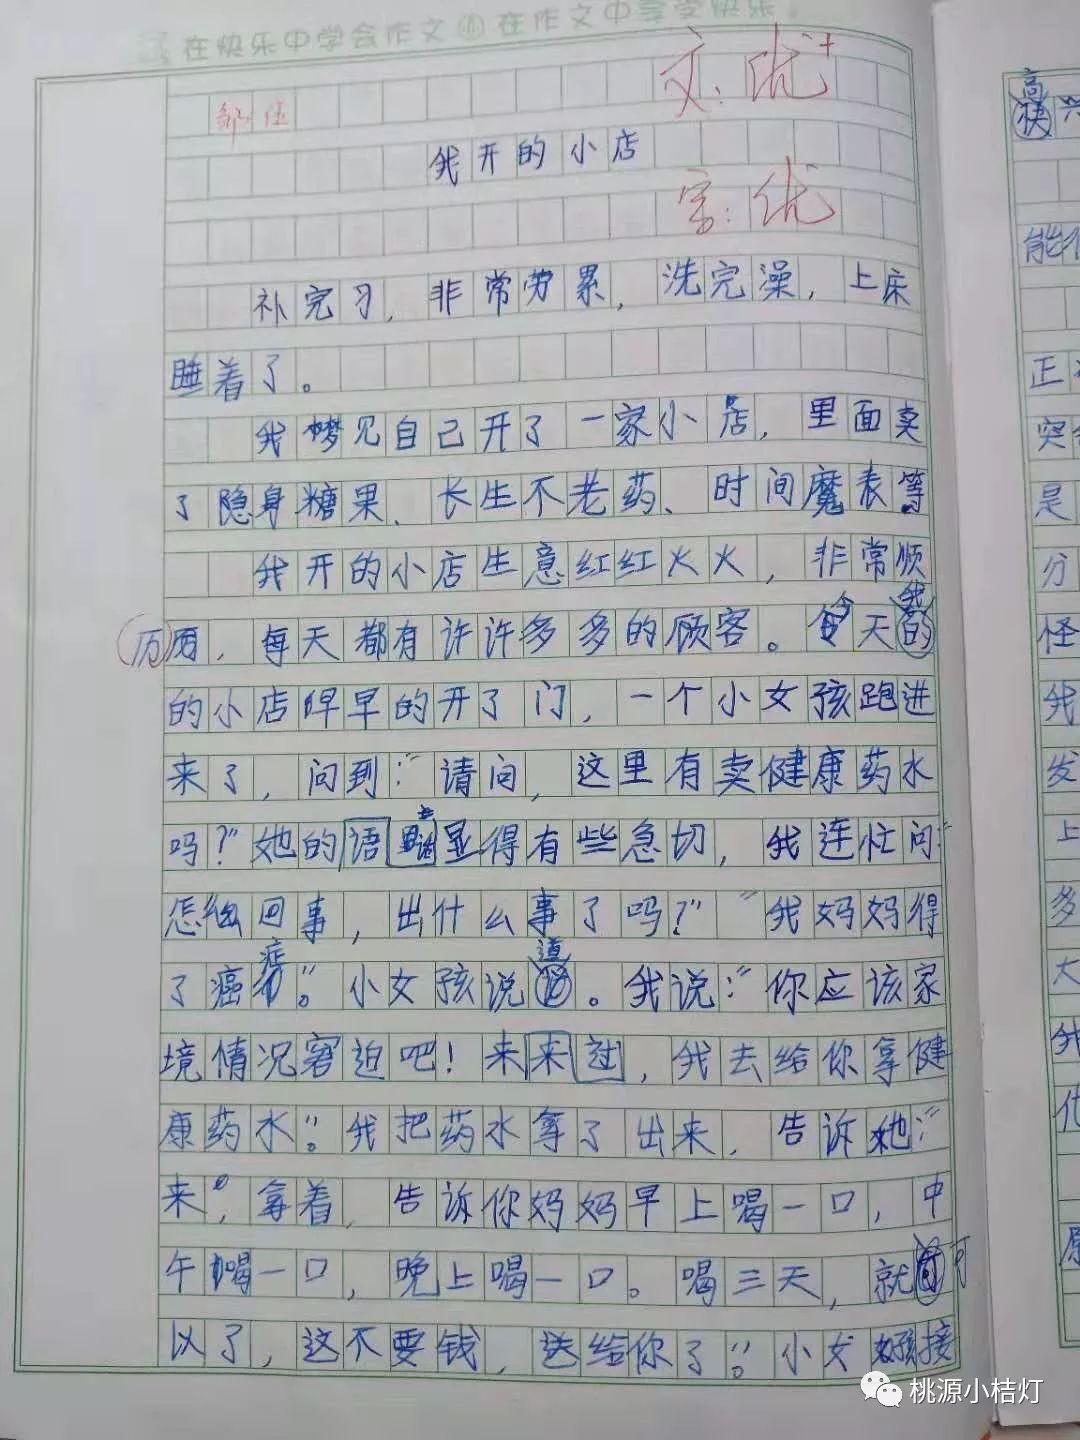 在快乐中学会作文 在作文中享受快乐
文:优+
邹佳
我开的小店
字:优
补完习,非常劳累,洗完澡,上床
睡着了。
我梦见自己开了一家小店,里面卖
了隐身糖果、长生不老药、时间魔表等。
我开的小店生意红红火火,非常顺
历,每天都有许许多多的顾客。今天我
的小店早早的开了门,一个小女孩跑进
来了,问到:“请问,这里有卖健康药水
吗?”她的语显得有些急切,我连忙问:“
怎么回事,出什么事了吗?”“我妈妈得
了癌病”。小女孩说道。我说:“你应该家
境情况窘迫吧!来来过,我去给你拿健
康药水”。我把药水拿了出来,告诉她:“
来,拿着,告诉你妈妈早上喝一口,中
午喝一口,晚上喝一口。喝三天,就可
以了,这不要钱,送给你了”。小女孩接
高
兴
能
正
突
是
分
怪
我
发
上
多
大
我
他
原
桃源小桔灯